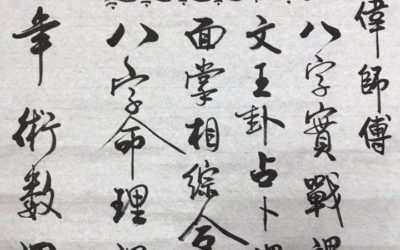 偉師傅
八字實戰課
文王卦占卜課
面掌相綜合
八字命理課
年術數課